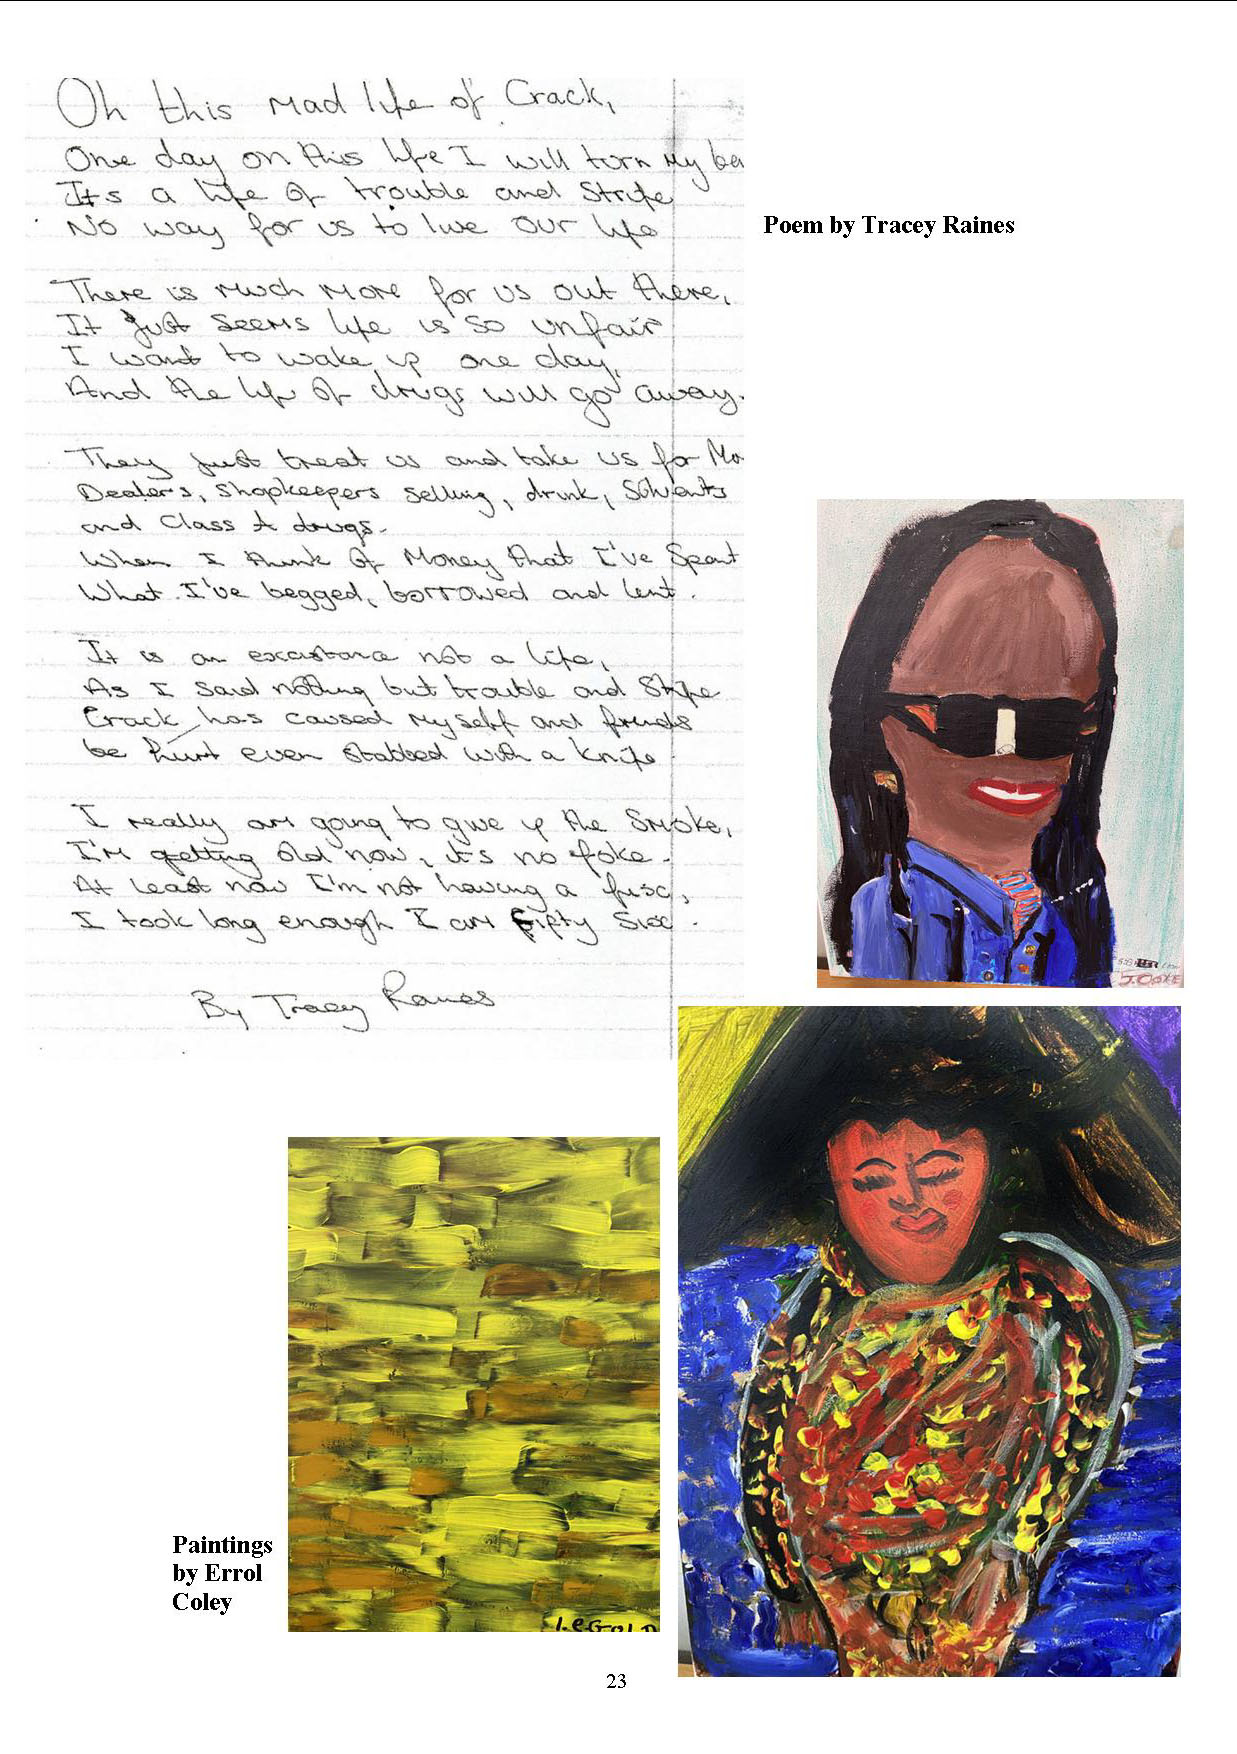 Oh this Mad life of Crack,
One day on this life I will turn My
Its a life of trouble and Strife
No way for us to live our life
There is Much More for us out there,
It Just Seems life is so unfair
I want to wake up one day,
And the life of drugs will go away.
They Just treat us and take us for
Dealers, Shopkeepers selling, drink, Solvents
and Class A drugs.
When I think of Money that I've Spent
What I've begged, borrowed and lent.
It is an excistance not a life,
As I Said nothing but trouble and Strife
Crack has caused Myself and friends
be hurt even stabbed with a knife
I really am going to give up the Smoke,
I'm getting old now, its no joke.
At least now I'm not having a fix,
I took long enough I am Fifty Six.
By Tracey Raines
Poem by Tracey Raines
J.COKE
I.E.GOLD
Paintings
by Errol
Coley
23